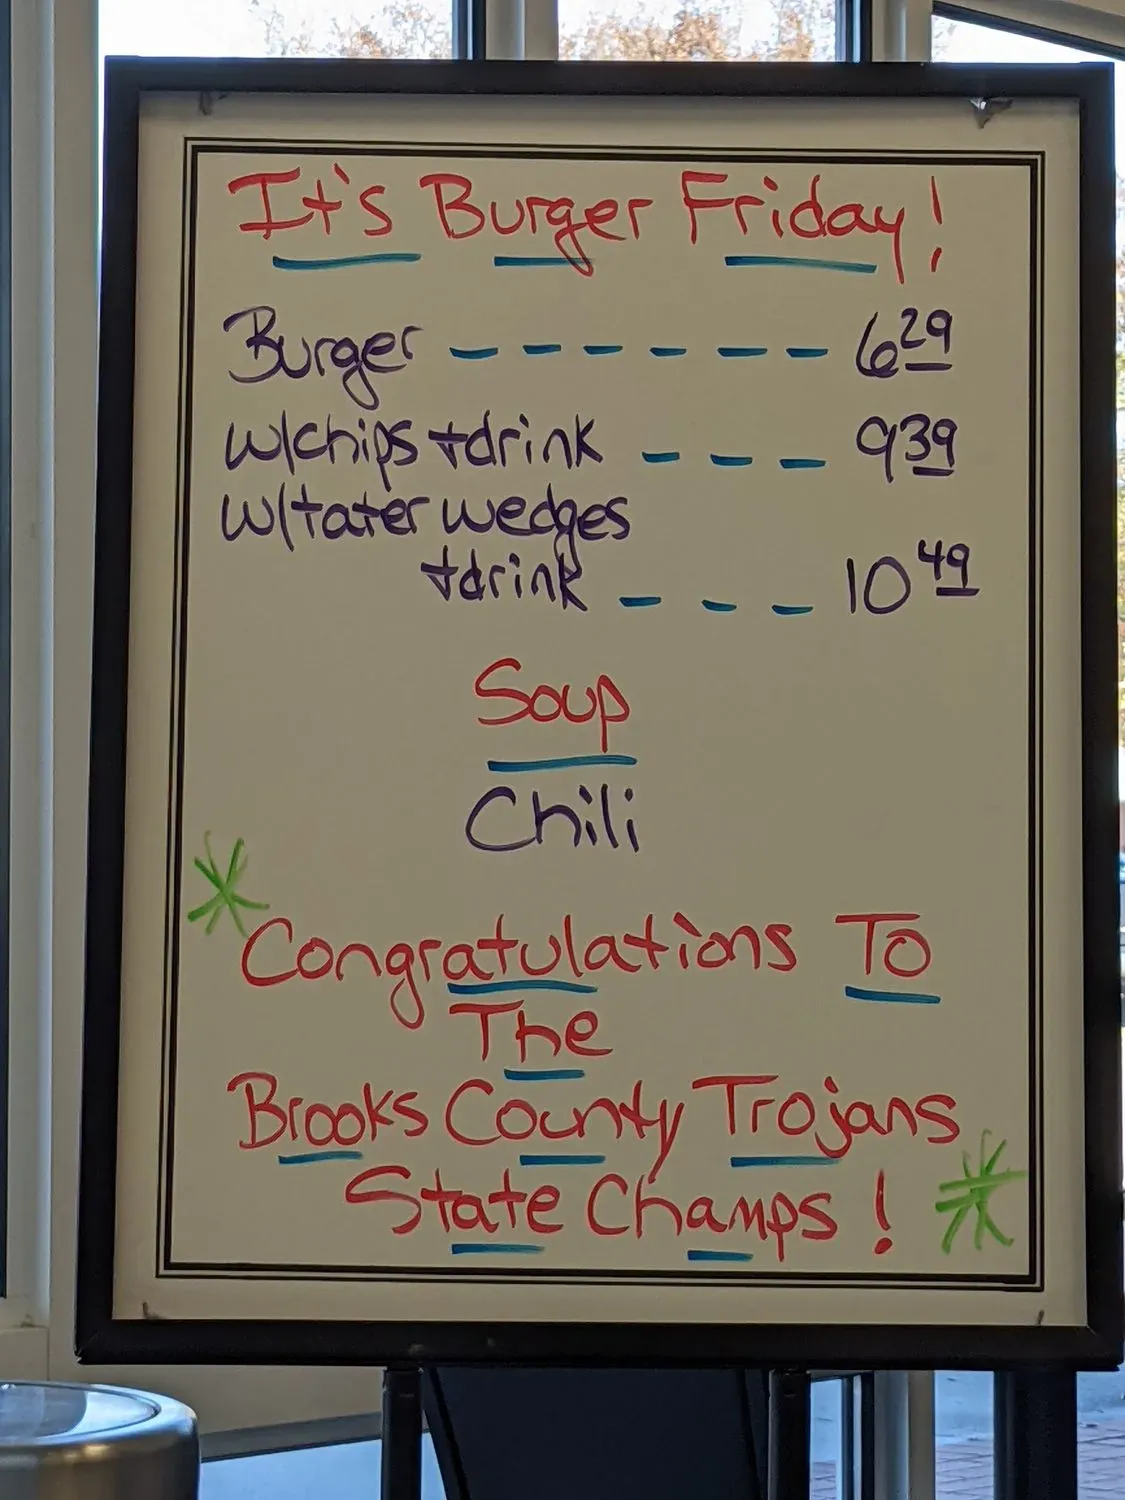 It's Burger Friday!
Burger - - - - - - 6 29
w/chips + drink - - - 9 39
w/tater wedges
+ drink - - - 10 49
Soup
Chili
* Congratulations To
The
Brooks County Trojans
State Champs! *